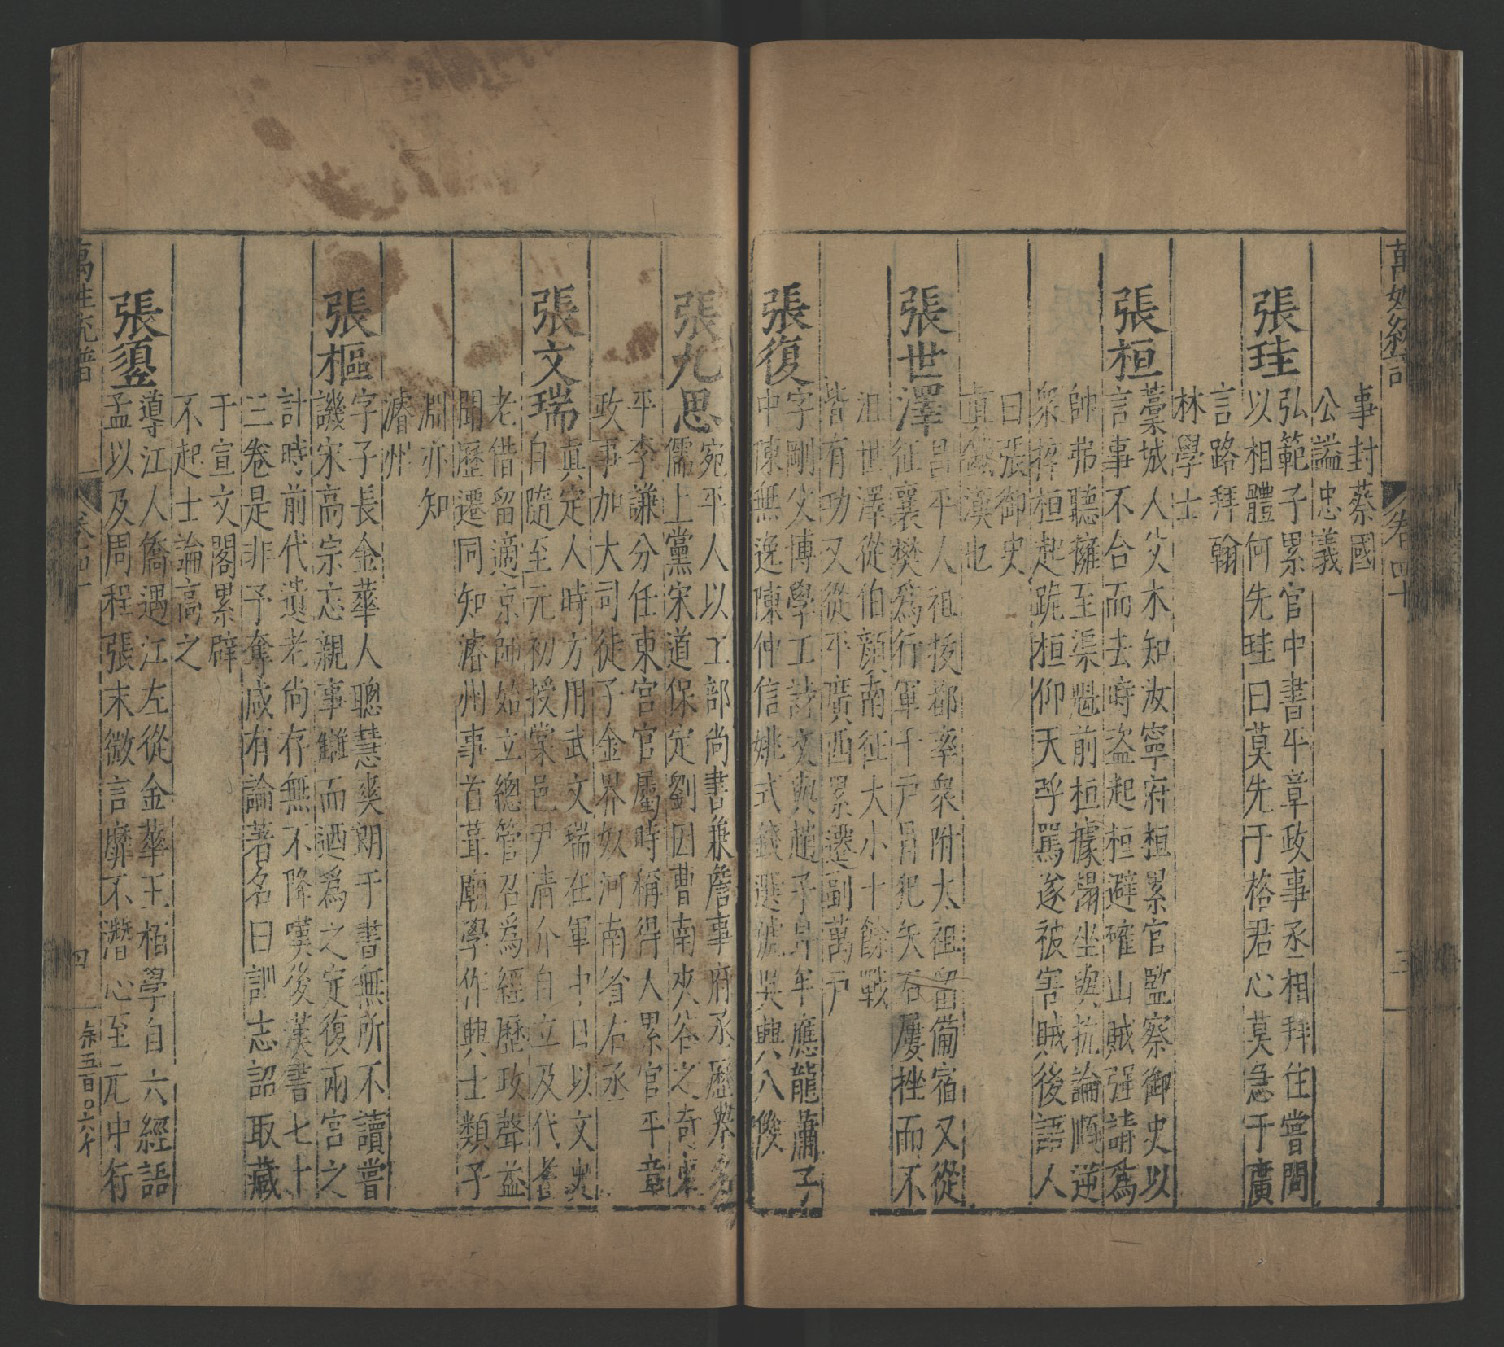 萬姓統譜
卷四十
三
事封蔡國
公謚忠義
張珪
弘範子累官中書平章政事丞相拜住嘗問
以相體何先珪曰莫先于格君心莫急于廣
言路拜翰
林學士
張桓
藁城人父木知汝寧府桓累官監察御史以
言事不合而去時盗起桓避確山賊强請爲
帥弗聽擁至渠魁前桓據榻坐與抗論順逆
衆捽桓起跪桓仰天呼罵遂被害賊後語人
曰張御史
真鐵漢也
張世澤
昌平人祖拔都率衆附太祖留備宿又從
征襄樊爲行軍千戸冒犯矢石屢挫而不
沮世澤從伯顏南征大小十餘戰
皆有功又從平廣西累遷副萬戸
張復
字剛父博學工詩文與趙子昂牟應龍蕭子
中陳無逸陳仲信姚式錢選號吳興八俊
張九思
宛平人以工部尚書兼詹事府丞歷舉名
儒上黨宋道保定劉因曹南夾谷之奇東
平李謙分任東宮官屬時稱得人累官平章
政事加大司徒子金界奴河南省右丞
張文瑞
真定人時方用武文瑞在軍中日以文史
自隨至元初授棠邑尹清介自立及代耆
老借留適京師始立總管召爲經歷政聲益
聞歷遷同知濬州事首葺廟學作興士類子
淵亦知
濬州
張樞
字子長金華人聰慧爽朗于書無所不讀嘗
譏宋高宗忘親事讎而迺爲之定復兩宮之
計時前代遺老尚存無不降嘆後漢書七十
三卷是非予奪咸有論著名曰訓志詔取藏
于宣文閣累辟
不起士論高之
張𩓣
導江人僑遇江左從金華王柏學自六經語
孟以及周程張末微言靡不潛心至元中行
萬姓統譜
卷四十
四